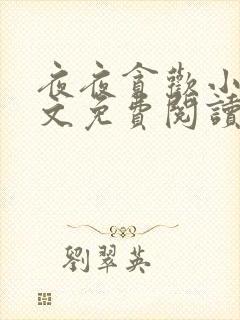 夜夜貪歡小
文免費閱讀
劉翠英